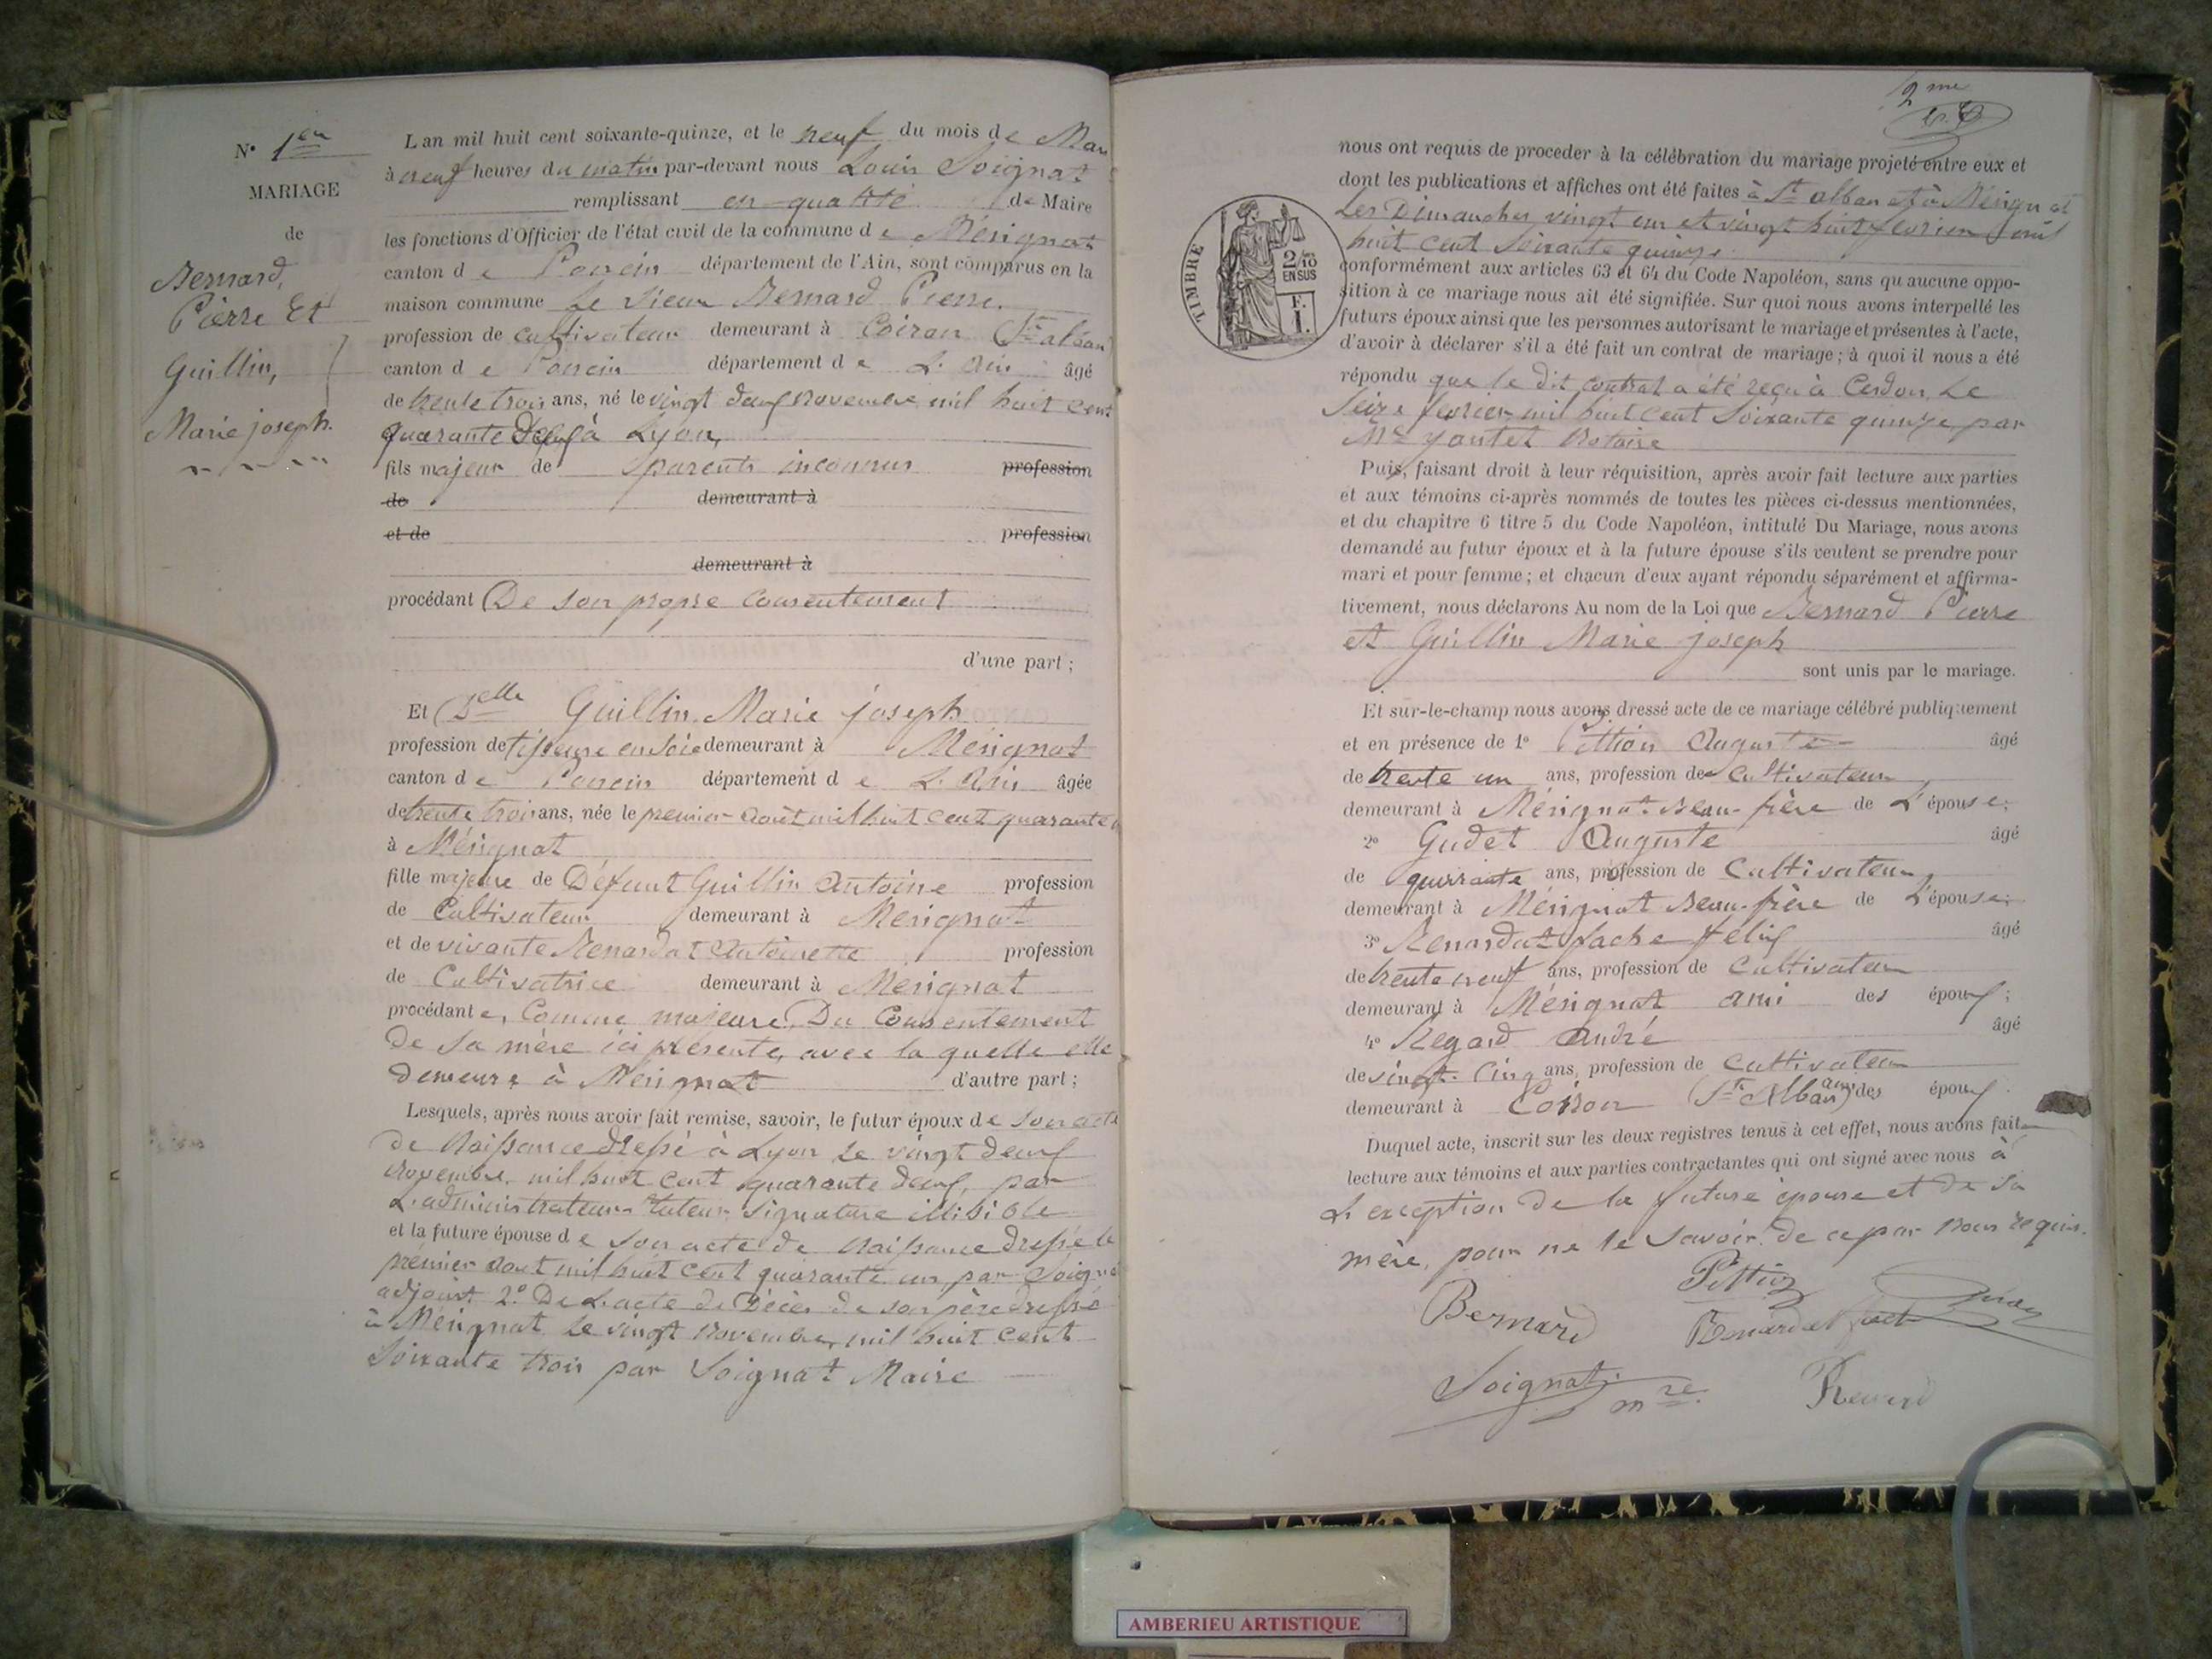 N° 1er
MARIAGE
de
Bernard,
Pierre Et
Guillin,
Marie joseph.
L'an mil huit cent soixante-quinze, et le neuf du mois de Mars
à neuf heures du matin par-devant nous Louis Soignat
remplissant en qualité de Maire
les fonctions d'Officier de l'état civil de la commune de Mérignat
canton de Poncin département de l'Ain, sont comparus en la
maison commune Le Sieur Bernard Pierre.
profession de cultivateur demeurant à Coiron (St alban)
canton de Poncin département de L'Ain âgé
de trente trois ans, né le vingt deux novembre mil huit cent
quarante deux à Lyon,
fils majeur de parents inconnus profession
de demeurant à
et de profession
demeurant à
procédant De son propre Consentement
d'une part ;
Et Delle Guillin Marie joseph
profession de tisseuse en soie demeurant à Mérignat
canton de Poncin département de L'Ain âgée
de trente trois ans, née le premier Août mil huit cent quarante
à Mérignat
fille majeure de Défunt Guillin Antoine profession
de Cultivateur demeurant à Mérignat
et de vivante Renardat Antoinette profession
de Cultivatrice demeurant à Mérignat
procédante, Comme majeure, Du Consentement
De Sa mère ici présente, avec la quelle elle
Demeure à Mérignat d'autre part ;
Lesquels, après nous avoir fait remise, savoir, le futur époux de Son acte
de Naissance dressé à Lyon Le vingt deux
Novembre, mil huit cent quarante deux, par
L'administrateur tuteur Signature illisible
et la future épouse de Son acte de Naissance dressé le
prémier Aout mil huit cent quarante un par Soignat
adjoint 2° De L'acte de Décès de son père dressé
à Mérignat Le vingt Novembre, mil huit cent
Soixante trois par Soignat Maire
2me
nous ont requis de proceder à la célébration du mariage projeté entre eux et
dont les publications et affiches ont été faites à St alban et à Mérignat
Les Dimanches vingt un et vingt huit fevrier mil
huit cent Soixante quinze
conformément aux articles 63 et 64 du Code Napoléon, sans qu'aucune oppo-
sition à ce mariage nous ait été signifiée. Sur quoi nous avons interpellé les
futurs époux ainsi que les personnes autorisant le mariage et présentes à l'acte,
d'avoir à déclarer s'il a été fait un contrat de mariage ; à quoi il nous a été
répondu que le dit contrat a été reçu à Cerdon, Le
Seize fevrier mil huit cent Soixante quinze par
Me Notaire
TIMBRE
2/10
EN SUS
F.
1.
Puis, faisant droit à leur réquisition, après avoir fait lecture aux parties
et aux témoins ci-après nommés de toutes les pièces ci-dessus mentionnées,
et du chapitre 6 titre 5 du Code Napoléon, intitulé Du Mariage, nous avons
demandé au futur époux et à la future épouse s'ils veulent se prendre pour
mari et pour femme ; et chacun d'eux ayant répondu séparément et affirma-
tivement, nous déclarons Au nom de la Loi que Bernard Pierre
et Guillin Marie joseph
sont unis par le mariage.
Et sur-le-champ nous avons dressé acte de ce mariage célébré publiquement
et en présence de 1° Pittion Auguste âgé
de trente un ans, profession de Cultivateur
demeurant à Mérignat Beau-frère de L'épouse ;
2° Gudet Auguste âgé
de quarante ans, profession de Cultivateur,
demeurant à Mérignat Beau-frère de L'épouse ;
3° Renardat fache félix âgé
de trente neuf ans, profession de Cultivateur
demeurant à Mérignat ami des époux ;
4° Regard André âgé
de vingt-Cinq ans, profession de Cultivateur
demeurant à Coiron (St Alban) ami des époux.
Duquel acte, inscrit sur les deux registres tenus à cet effet, nous avons fait
lecture aux témoins et aux parties contractantes qui ont signé avec nous à
L'exception de la future épouse et de sa
mère, pour ne le Savoir de ce par nous requis.
Pittion
Bernard
Renardat
Soignat
mre
AMBERIEU ARTISTIQUE